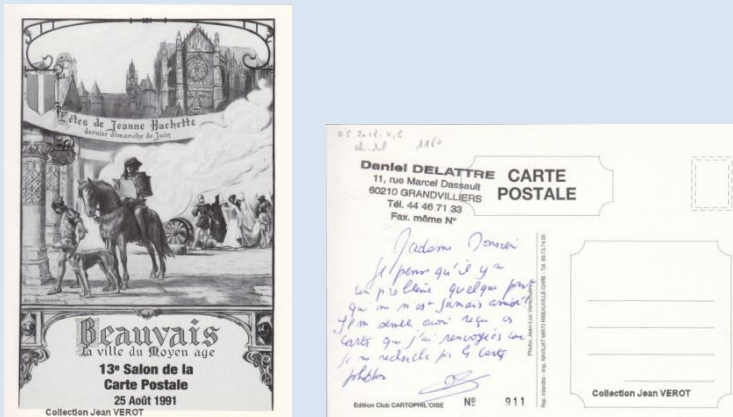 Fêtes de Jeanne Hachette
dernier dimanche de Juin
Beauvais
La ville du Moyen age
13e Salon de la
Carte Postale
25 Août 1991
Collection Jean VEROT
Daniel DELATTRE
11, rue Marcel Dassault
60210 GRANDVILLIERS
Tél. 44 46 71 33
Fax. même N°
CARTE
POSTALE
Madame Monsieur
Je pense qu'il y a
un problème quelque part
qui ne m'est jamais arrivé
avoir reçu
carte que j'ai
je ne recherche la carte
photos
Edition Club CARTOPHIL'OISE
N° 911
Collection Jean VEROT